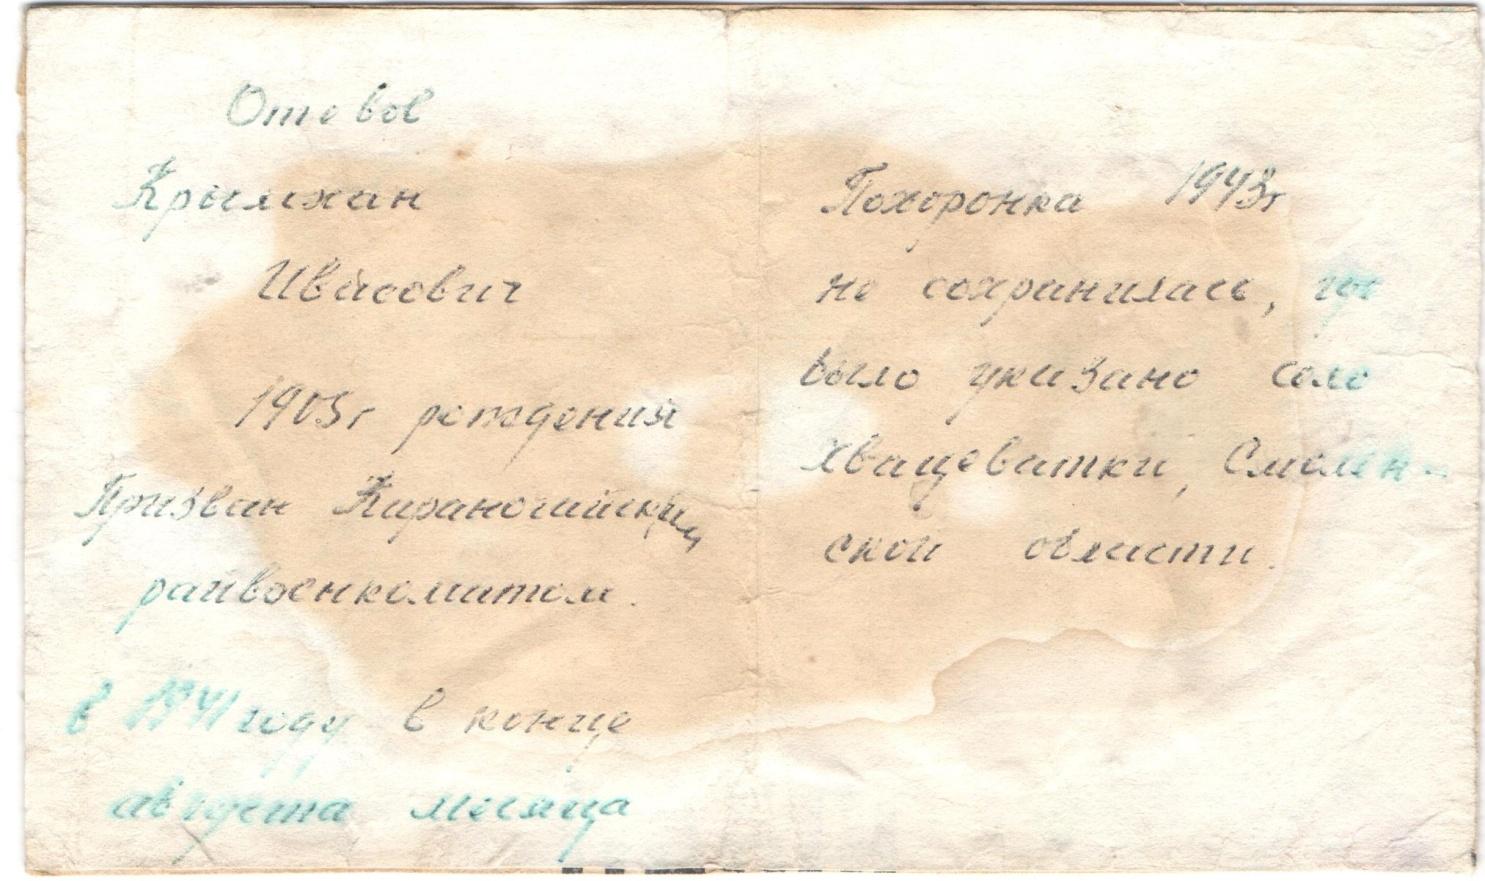 Отевов
Крымхан
Ивасович
1905г рождения
Призван Караногайским
райвоенкоматом.
в 1941 году в конце
августа месяца
Похоронка 1943г
не сохранилась, где
было указано село
Хващеватки, Смолен-
ской области.